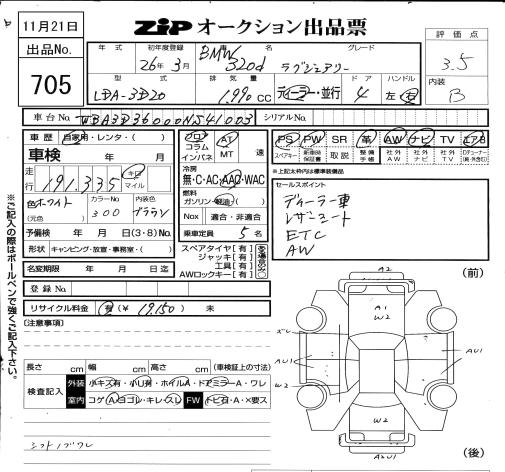 11月21日
ZiP オークション出品票
出品No.
705
年式 初年度登録 車名 グレード
26年3月 BMW 320d ラグジュアリー
型式 排気量 ドア ハンドル
LDA-3D20 1,990 CC ディーラー・並行 4 左・右
評価点
3.5
内装
B
車台No. WBA3D36000NS41003 シリアルNo.
車歴 自家用・レンタ・( )
車検 年 月
走行 191,335 キロ マイル
色 ホワイト カラーNo 300 内装色 ブラウン
(元色)
予備検 年 月 日(3・8)No.
形状 キャンピング・放置・事務室・( )
名変期限 年 月 日迄
登録No.
リサイクル料金 有(¥ 19,150 ) 未
フロア コラム インパネ AT MT 速
冷房 無・C・AC・AAC・WAC
燃料 ガソリン・軽油・( )
Nox 適合・非適合
乗車定員 5 名
スペアタイヤ[有]
ジャッキ[有]
工具[有]
AWロックキー[有]
PS PW SR 革 AW ナビ TV エアB
スペアキー 新車時保証書 取説 整備手帳 社外AW 社外ナビ 社外TV
※上記太枠内は標準装備品
セールスポイント
ディーラー車
レザーシート
ETC
AW
【注意事項】
長さ cm 幅 cm 高さ cm (車検証上の寸法)
検査記入 外装 小キズ有・小U有・ホイルA・ドアミラーA・ワレ
室内 コゲA・ヨゴレ・キレ・スレ FW トビ石・A・×要ス
シフトノブワレ
※ご記入の際はボールペンで強くご記入下さい。
(前)
A2
A1
W2
AU1
W2
AU1
W2
(後)